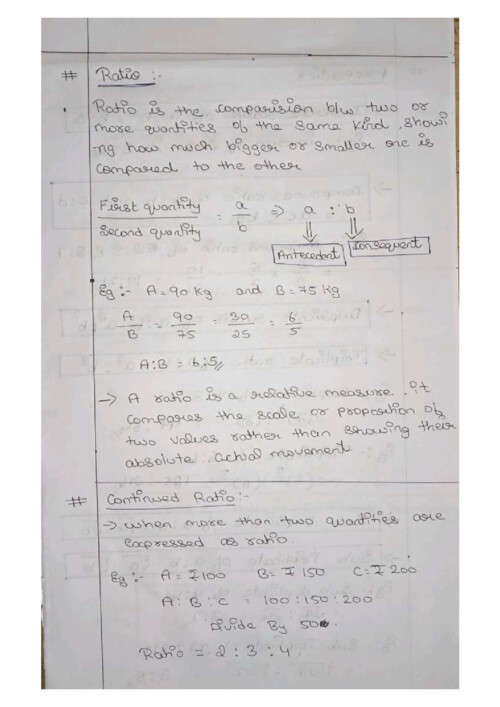 # Ratio :-
Ratio is the comparision b/w two or
more quantities of the same kind, showi
ng how much bigger or smaller one is
compared to the other
First quantity / Second quantity = a/b => a : b
Antecedent Consequent
Eg :- A = 90 kg and B = 75 kg
A/B = 90/75 = 30/25 = 6/5
A:B = 6:5//
→ A ratio is a relative measure. it
compares the scale or proposition of
two values rather than showing their
absolute. Actual movement.
# Continued Ratio :-
→ when more than two quantities are
expressed as ratio.
Eg :- A = ₹100 B = ₹150 C = ₹200
A : B : C = 100 : 150 : 200
Divide By 50
Ratio = 2 : 3 : 4.